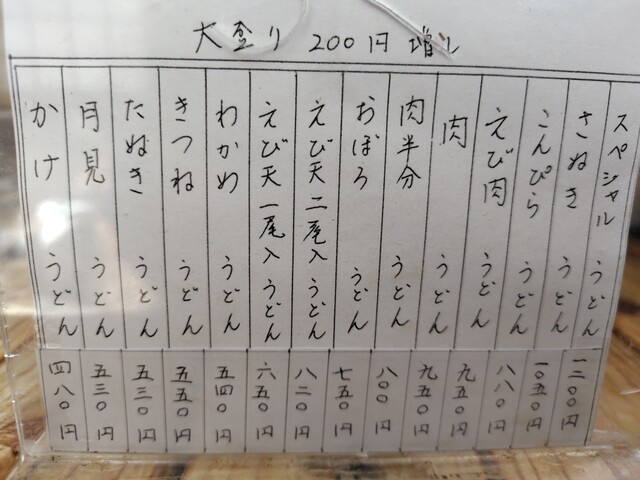 大盛り 200円増し
スペシャル うどん 一二〇〇円
さぬき うどん 一〇五〇円
こんぴら うどん 八八〇円
えび肉 うどん 九五〇円
肉 うどん 九五〇円
肉半分 うどん 八〇〇円
おぼろ うどん 七五〇円
えび天二尾入 うどん 八二〇円
えび天一尾入 うどん 六五〇円
わかめ うどん 五四〇円
きつね うどん 五五〇円
たぬき うどん 五三〇円
月見 うどん 五三〇円
かけ うどん 四八〇円